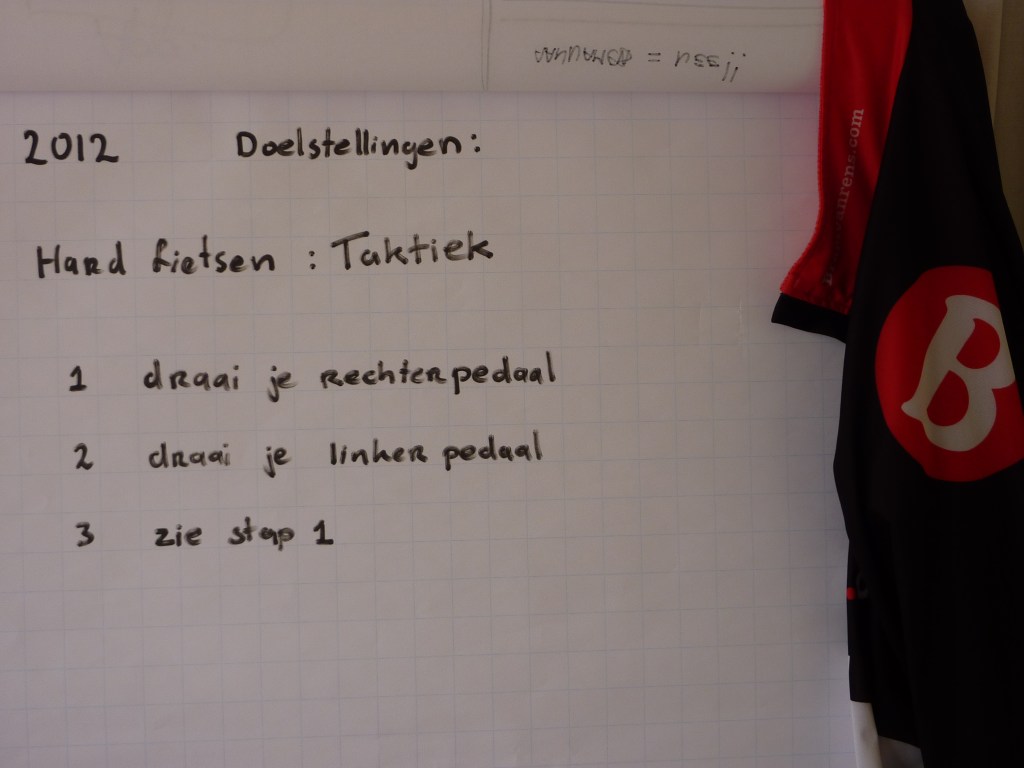 2012 Doelstellingen:
Hard fietsen : Taktiek
1 draai je rechterpedaal
2 draai je linker pedaal
3 zie stap 1
B